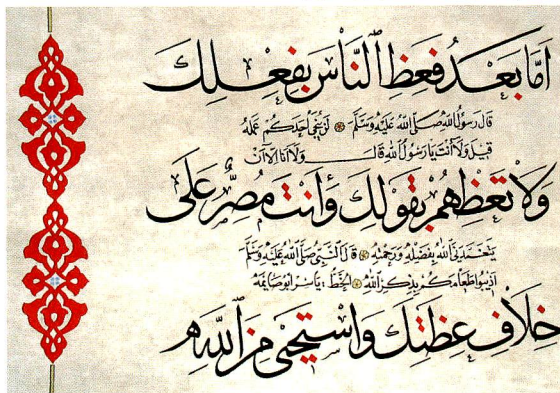 أما بعد فعظ الناس بفعلك
قال رسول الله صلى الله عليه وسلم لن ينجي أحدكم عمله
قيل ولا أنت يا رسول الله قال ولا أنا إلا أن
ولا تعظهم بقولك وأنت مصر على
يتغمدني الله بفضله ورحمته قال النبي صلى الله عليه وسلم
أذيبوا طعامكم بذكر الله الخط: ياسر أبو صايمه
خلاف عظتك واستحيي من الله